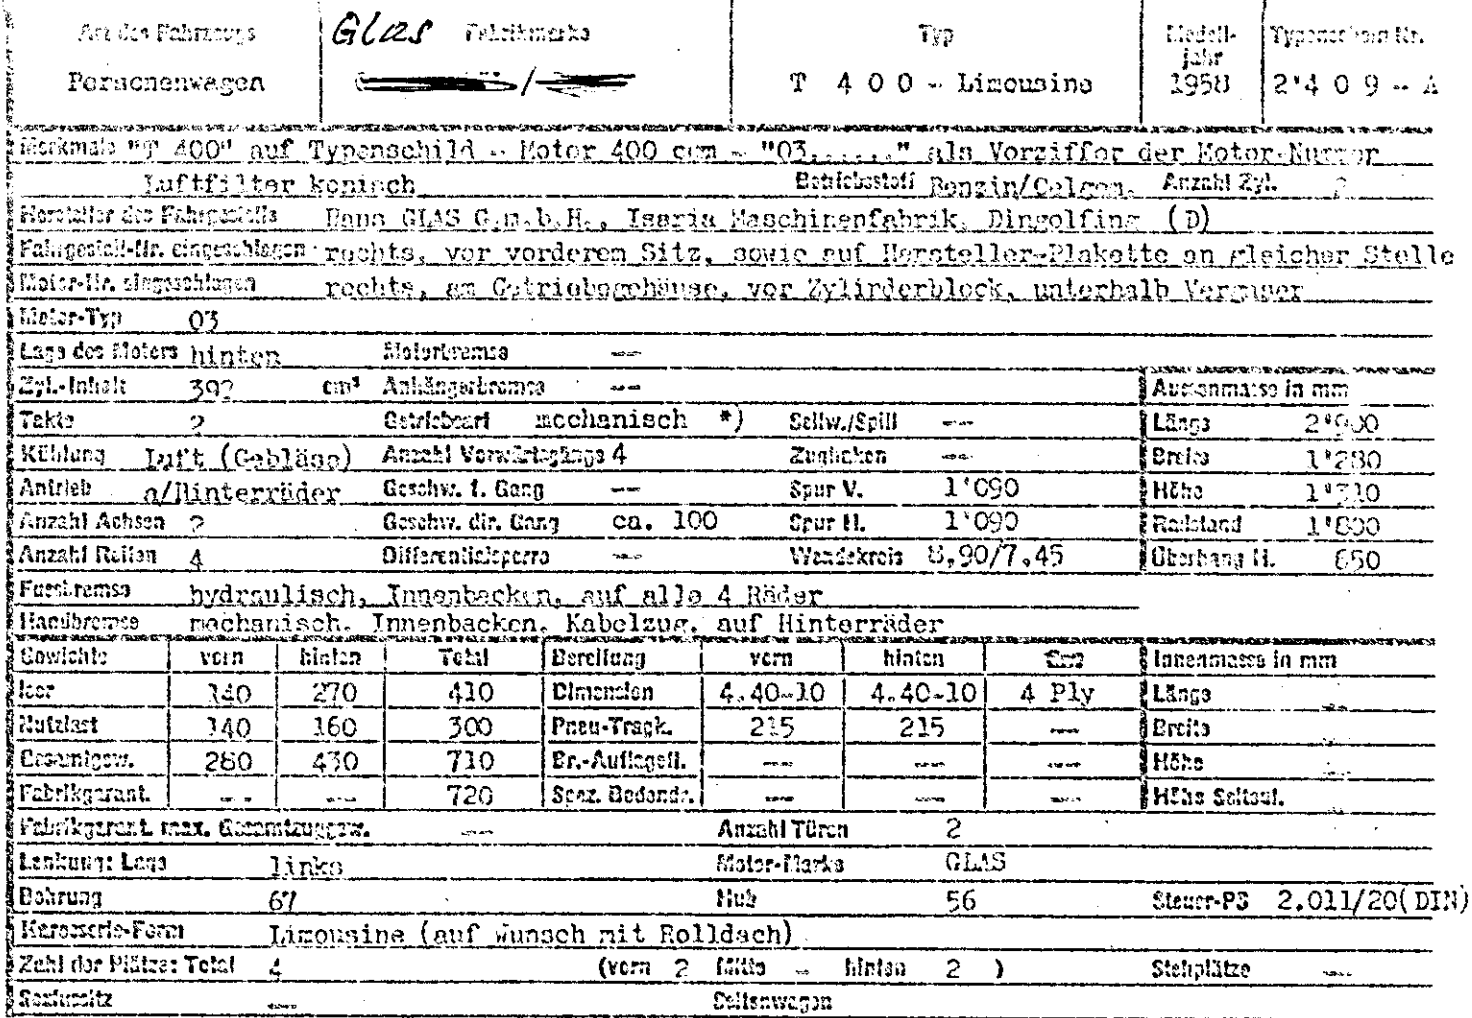 Art des Fahrzeugs Glas Fabrikmarke Typ Modell-jahr Typenschein Nr.
Personenwagen / T 400 - Limousine 1958 2'409 - A
Merkmale "T 400" auf Typenschild - Motor 400 ccm - "03......" als Vorziffer der Motor-Nummer
Luftfilter konisch Betriebsstoff Benzin/Oelgem. Anzahl Zyl. 2
Hersteller des Fahrgestells Hans GLAS G.m.b.H., Isaria Maschinenfabrik, Dingolfing (D)
Fahrgestell-Nr. eingeschlagen rechts, vor vorderem Sitz, sowie auf Hersteller-Plakette an gleicher Stelle
Motor-Nr. eingeschlagen rechts, am Getriebegehäuse, vor Zylinderblock, unterhalb Vergaser
Motor-Typ 03
Lage des Motors hinten Motorbremse --
Zyl.-Inhalt 392 cm³ Anhängerbremse -- Aussenmasse in mm
Takte 2 Getriebeart mechanisch *) Seilw./Spill -- Länge 2'900
Kühlung Luft (Gebläse) Anzahl Vorwärtsgänge 4 Zughaken -- Breite 1'280
Antrieb a/Hinterräder Geschw. 1. Gang -- Spur V. 1'090 Höhe 1'310
Anzahl Achsen 2 Geschw. dir. Gang ca. 100 Spur H. 1'090 Radstand 1'800
Anzahl Reifen 4 Differentialsperre -- Wendekreis 8,90/7,45 Überhang H. 650
Fussbremse hydraulisch, Innenbacken, auf alle 4 Räder
Handbremse mechanisch, Innenbacken, Kabelzug, auf Hinterräder
Gewichte vorn hinten Total Bereifung vorn hinten Innenmasse in mm
leer 140 270 410 Dimension 4.40-10 4.40-10 4 Ply Länge --
Nutzlast 140 160 300 Pneu-Tragk. 215 215 -- Breite --
Gesamtgew. 280 430 710 Br.-Auflagefl. -- -- -- Höhe --
Fabrikgarant. -- -- 720 Spez. Bodendr. -- -- -- Höhe Seitenl.
Fabrikgarant. max. Gesamtzuggew. -- Anzahl Türen 2
Lenkung: Lage links Motor-Marke GLAS
Bohrung 67 Hub 56 Steuer-PS 2.011/20(DIN)
Karosserie-Form Limousine (auf Wunsch mit Rolldach)
Zahl der Plätze: Total 4 (vorn 2 Mitte - hinten 2 ) Stehplätze --
Soziussitz -- Seitenwagen